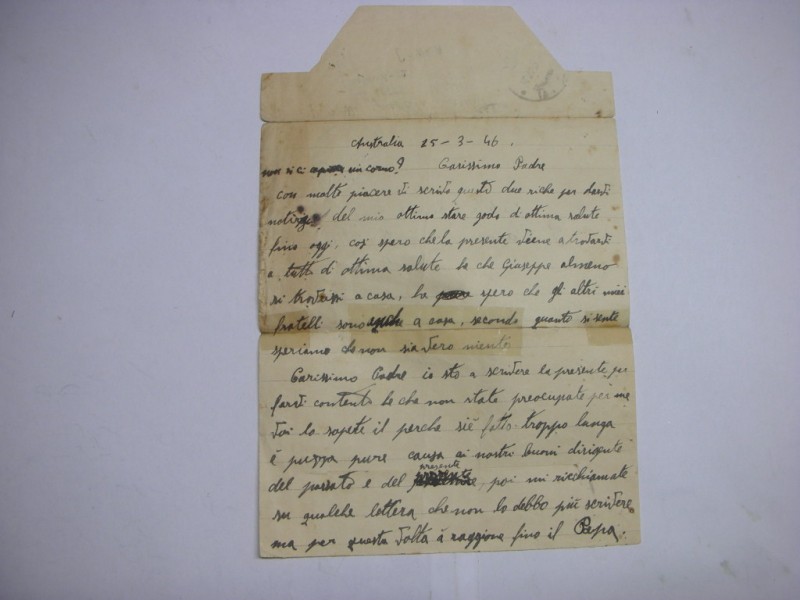 Australia 25-3-46.
non si ci un corno? Carissimo Padre
con molte piacere vi scrivo questi due riche per darvi
notizie, del mio ottimo stare godo d'ottima salute
fino oggi, così spero che la presente viene a trovarvi
a tutti di ottima salute be che Giuseppe almeno
si trovassi a casa, ba spero che gli altri miei
fratelli sono a casa, secondo quanto si sente
speriamo che non sia vero niente
Carissimo Padre io sto a scrivere la presente per
farvi contenti be che non state preoccupate per me
voi lo sapete il perche siè fatto troppo langa
è puzza pure causa ai nostri buoni dirigente
del passato e del presente, poi mi richiamate
su qualche lettera che non lo debbo più scrivere
ma per questa volta à raggione fino il Papa.